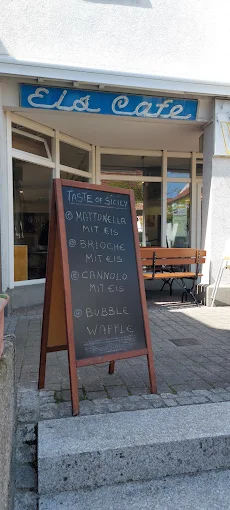 Eis Cafe
TASTE OF SICILY
@ MATTONELLA
MIT EIS
@ BRIOCHE
MIT EIS
@ CANNOLO
MIT EIS
@ BUBBLE
WAFFLE
MIT EIS